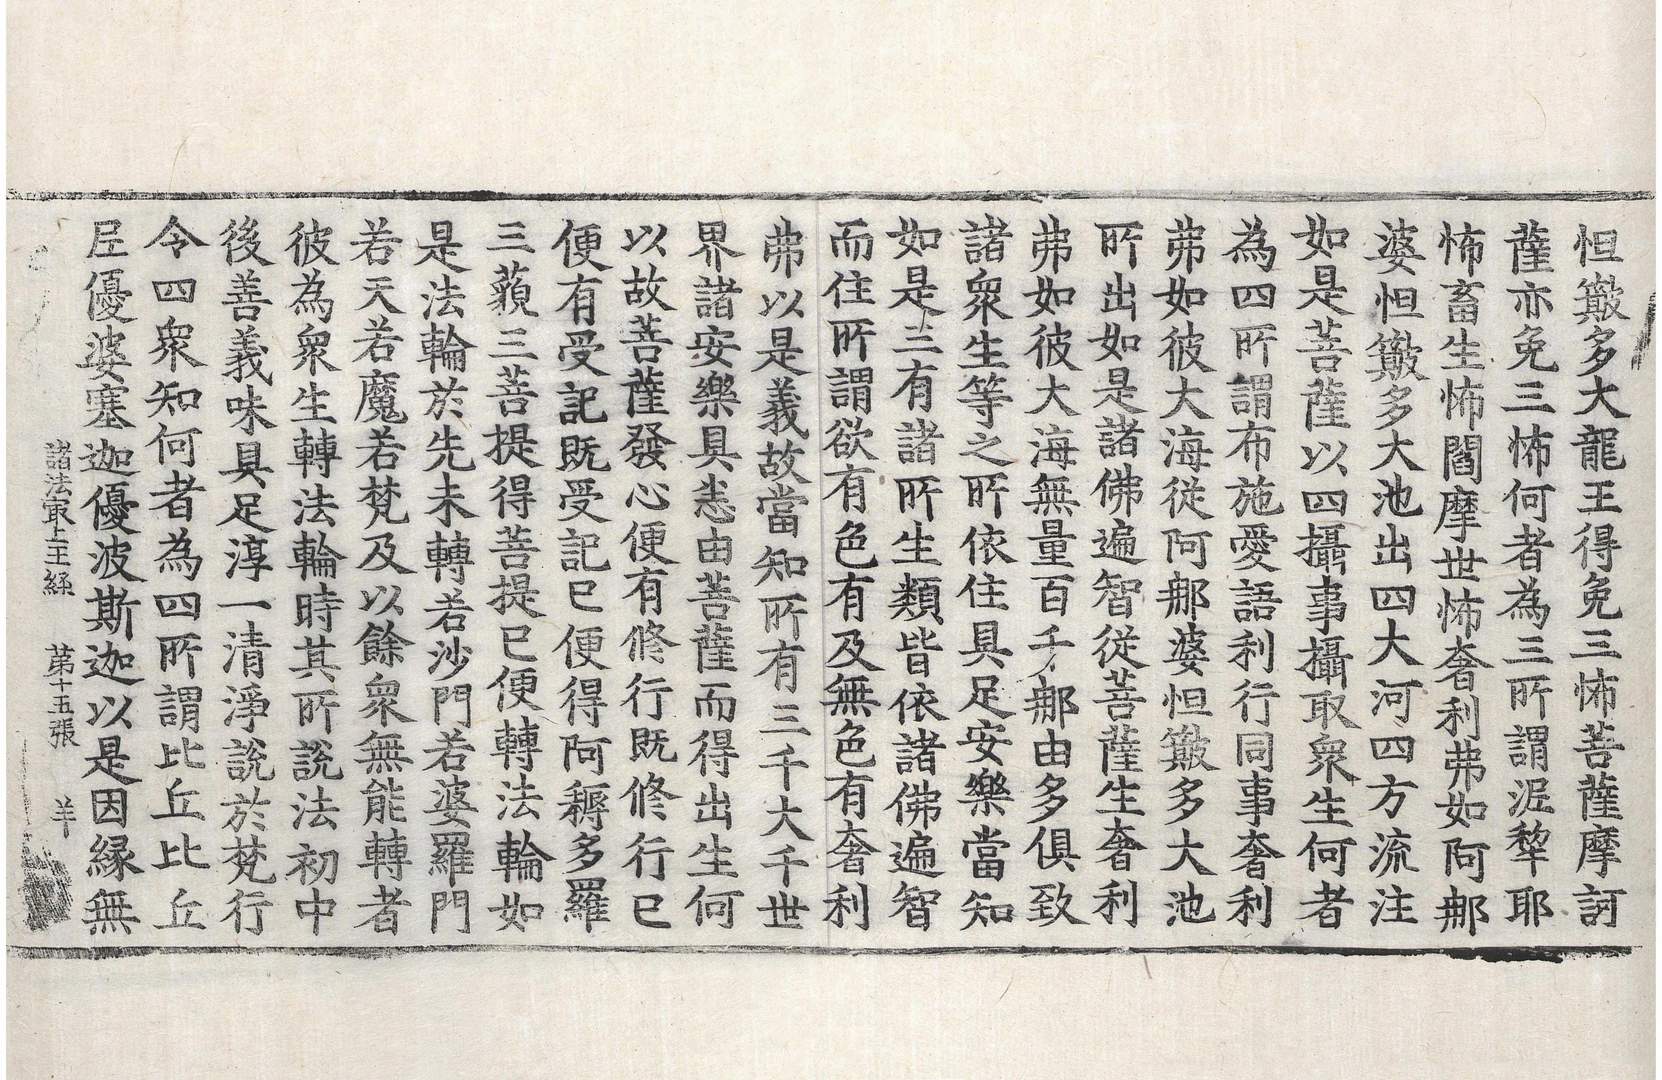 怛䉤多大龍王得免三怖菩薩摩訶
薩亦免三怖何者為三所謂泥犂耶
怖畜生怖閻摩世怖奢利弗如阿那
婆怛䉤多大池出四大河四方流注
如是菩薩以四攝事攝取衆生何者
為四所謂布施愛語利行同事奢利
弗如彼大海從阿那婆怛䉤多大池
所出如是諸佛遍智從菩薩生奢利
弗如彼大海無量百千那由多俱致
諸衆生等之所依住具足安樂當知
如是三有諸所生類皆依諸佛遍智
而住所謂欲有色有及無色有奢利
弗以是義故當知所有三千大千世
界諸安樂具悉由菩薩而得出生何
以故菩薩發心便有修行既修行已
便有受記既受記已便得阿耨多羅
三藐三菩提得菩提已便轉法輪如
是法輪於先未轉若沙門若婆羅門
若天若魔若梵及以餘衆無能轉者
彼為衆生轉法輪時其所說法初中
後善義味具足淳一清淨說於梵行
令四衆知何者為四所謂比丘比丘
尼優婆塞迦優波斯迦以是因縁無
諸法最上王經 第十五張 羊